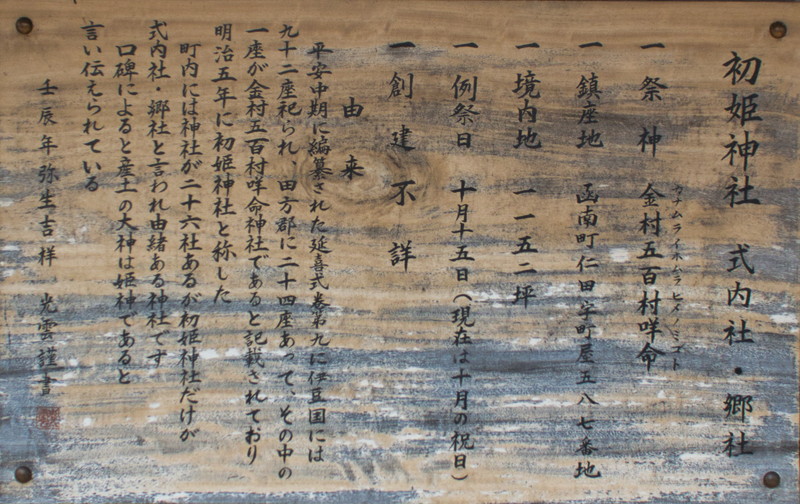 初姫神社 式内社・郷社
一 祭神 金村五百村咩命
一 鎮座地 函南町仁田字町屋五八七番地
一 境内地 一一五二坪
一 例祭日 十月十五日(現在は十月の祝日)
一 創建不詳
由来
平安中期に編纂された延喜式巻第九に伊豆国には
九十二座祀られ、田方郡に二十四座あって、その中の
一座が金村五百村咩命神社であると記載されており
明治五年に初姫神社と称した
町内には神社が二十六社あるが初姫神社だけが
式内社・郷社と言われ由緒ある神社です
口碑によると産土の大神は姫神であると
言い伝えられている
壬辰年弥生吉祥 光雲謹書